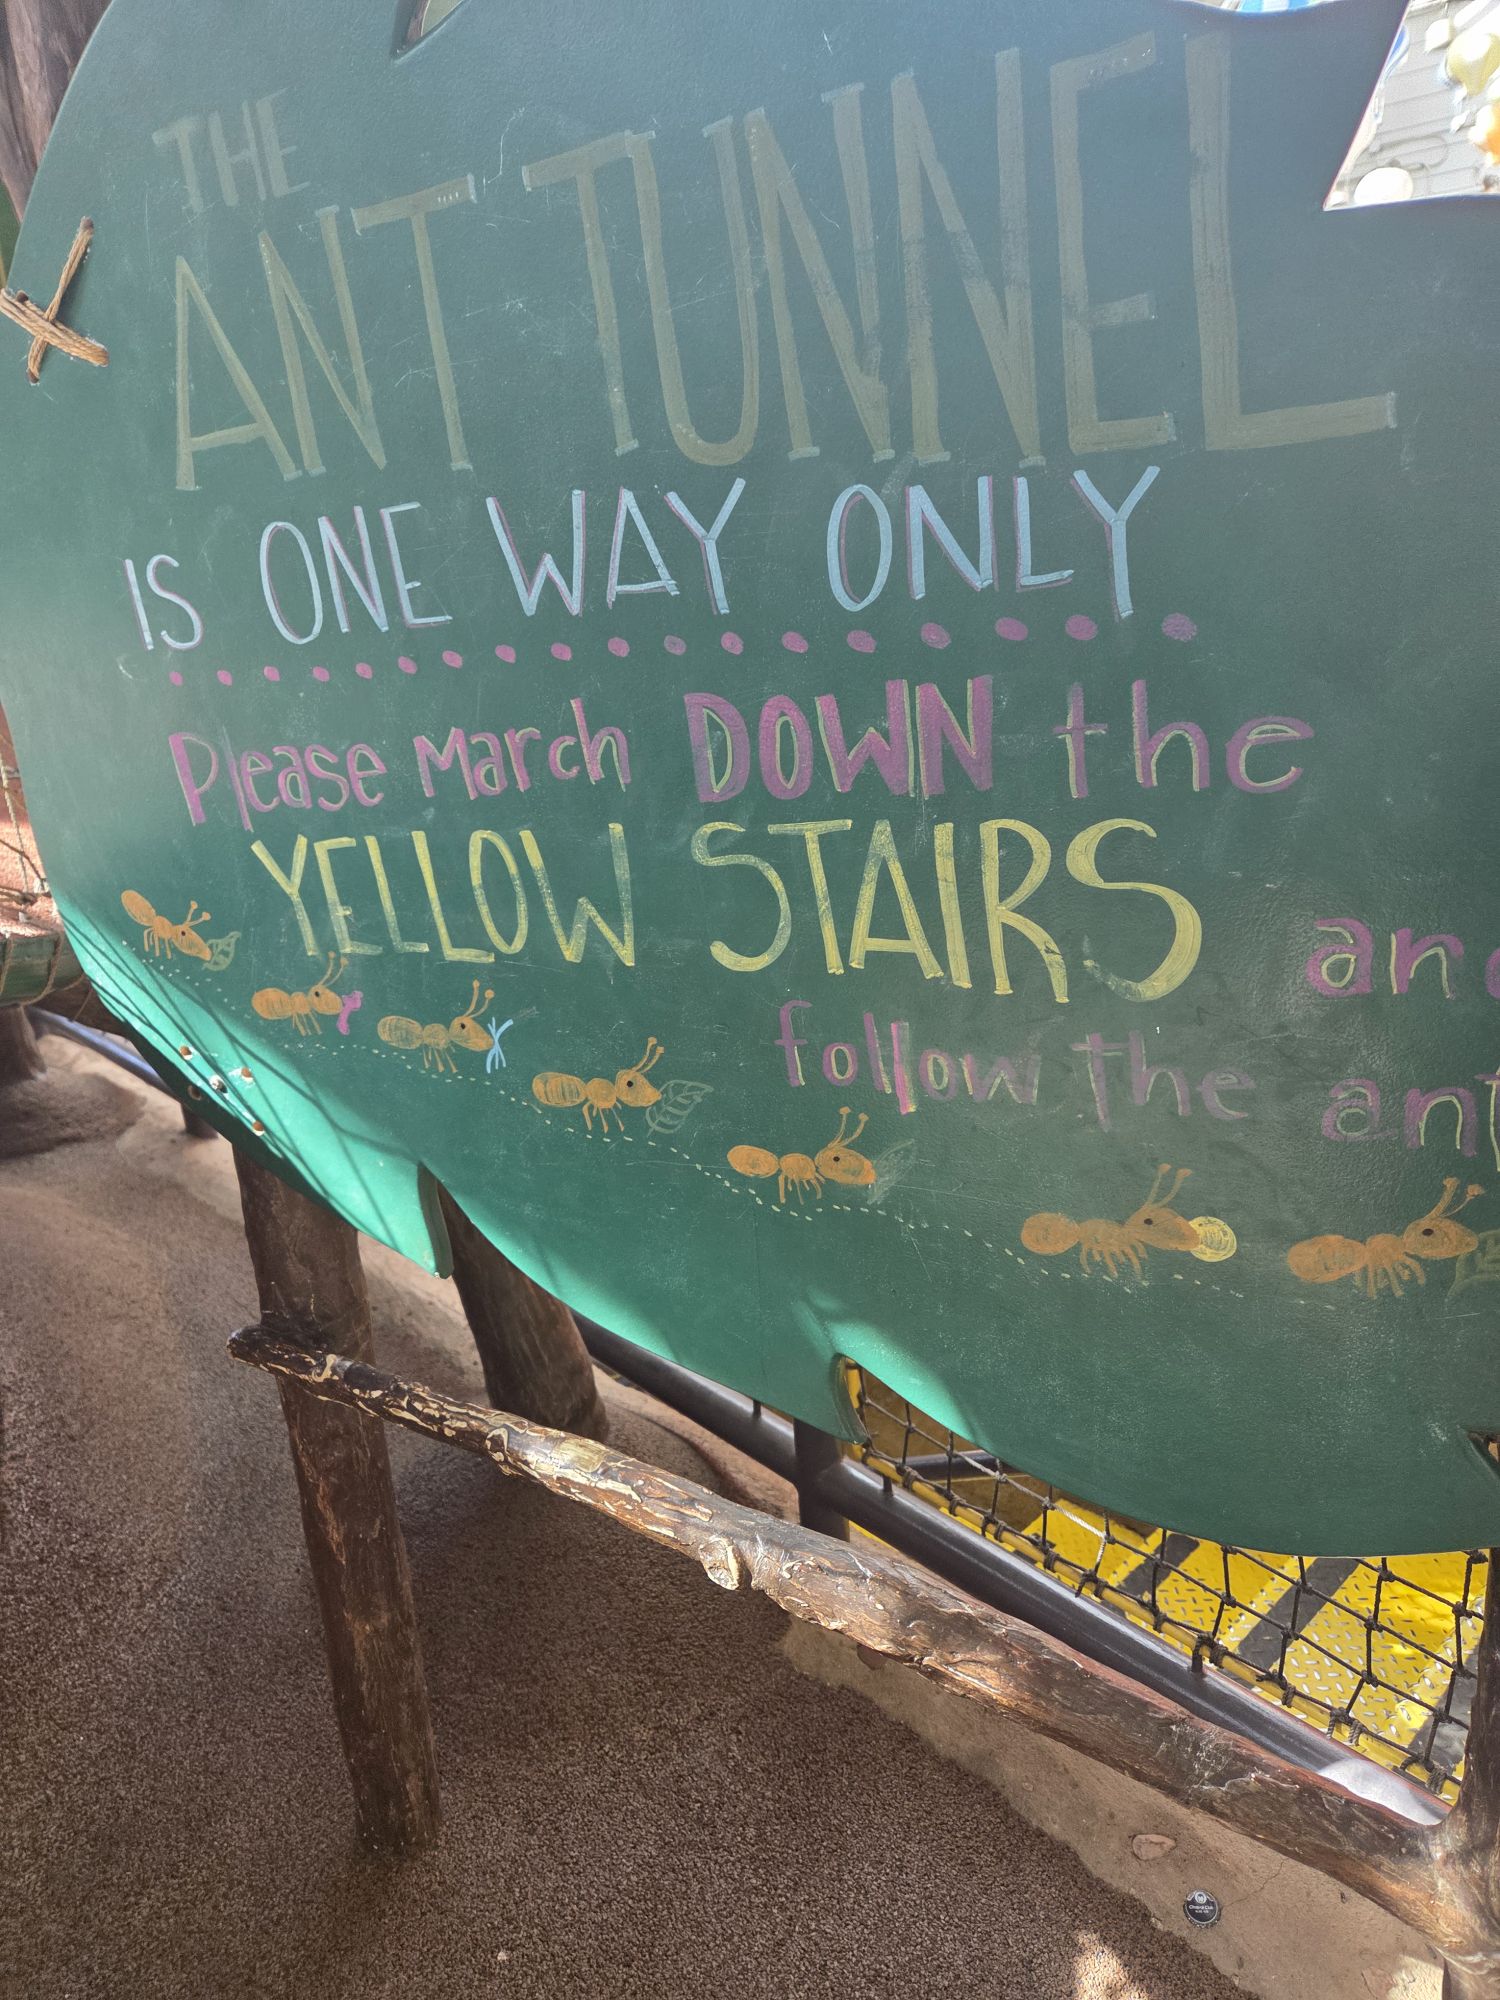 THE
ANT TUNNEL
IS ONE WAY ONLY
Please March DOWN the
YELLOW STAIRS and
follow the